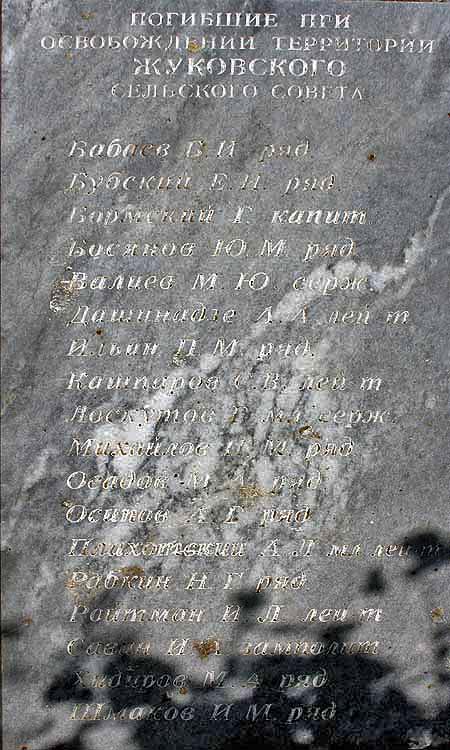 ПОГИБШИЕ ПРИ
ОСВОБОЖДЕНИИ ТЕРРИТОРИИ
ЖУКОВСКОГО
СЕЛЬСКОГО СОВЕТА
Бабаев В. И. ряд.
Бубский Е. И. ряд.
Бормский Г. капит.
Босянов Ю. М. ряд.
Валиев М. Ю. серж.
Дашинадзе А. А. лей т
Ильин П. М. ряд.
Каштаров С. В. лей т
Лоскутов мл серж.
Михайлов М. ряд
Осадов М. ряд
Осипов А. Г. ряд
А. Л. мл. лей т
Рабкин Н. Г. ряд
Райтман И. Л. лей т
Саван И. замполит
Хидиров М. А. ряд
Шмаков И. М. ряд